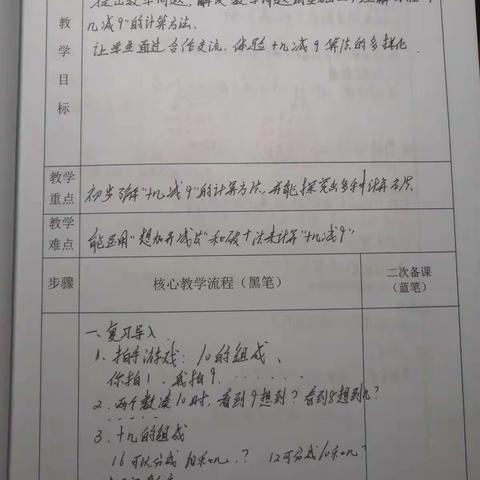 提出数学问题,解决数学问题
几减9"的计算方法.
让学生通过合作交流,体验十几减9算法的多样化.
教学目标
教学重点
初步了解"十几减9"的计算方法,并能探究出多种计算方法.
教学难点
能运用"想加算减法"和破十法来计算"十几减9"
步骤
核心教学流程(黑笔)
二次备课(蓝笔)
一、复习导入
1、拍手游戏:10的组成、
你拍1,我拍9.......
2、两个数凑10时,看到9想到?看到8想到几?
3、十几的组成
16可以分成10和几?12可分成10和几?